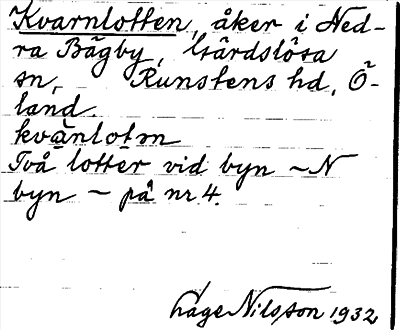 Kvarnlotten, åker i Ned-
ra Bägby, Gärdslösa
sn, Runstens hd, Ö-
land.
kvànlotn
Två lotter vid byn ~ N
byn ~ på nr 4.
Låge Nilsson 1932